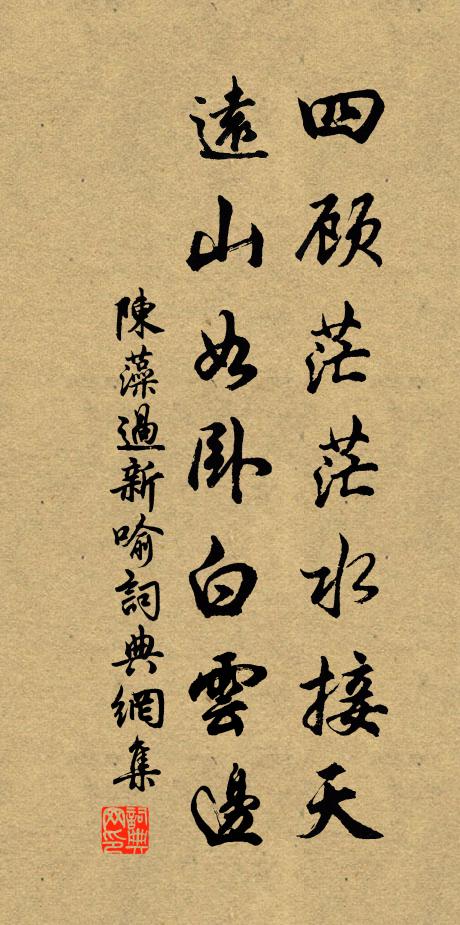 四顾茫茫水接天
遠山如卧白雲邊
陳藻過新喻詞典網集
詞典网印